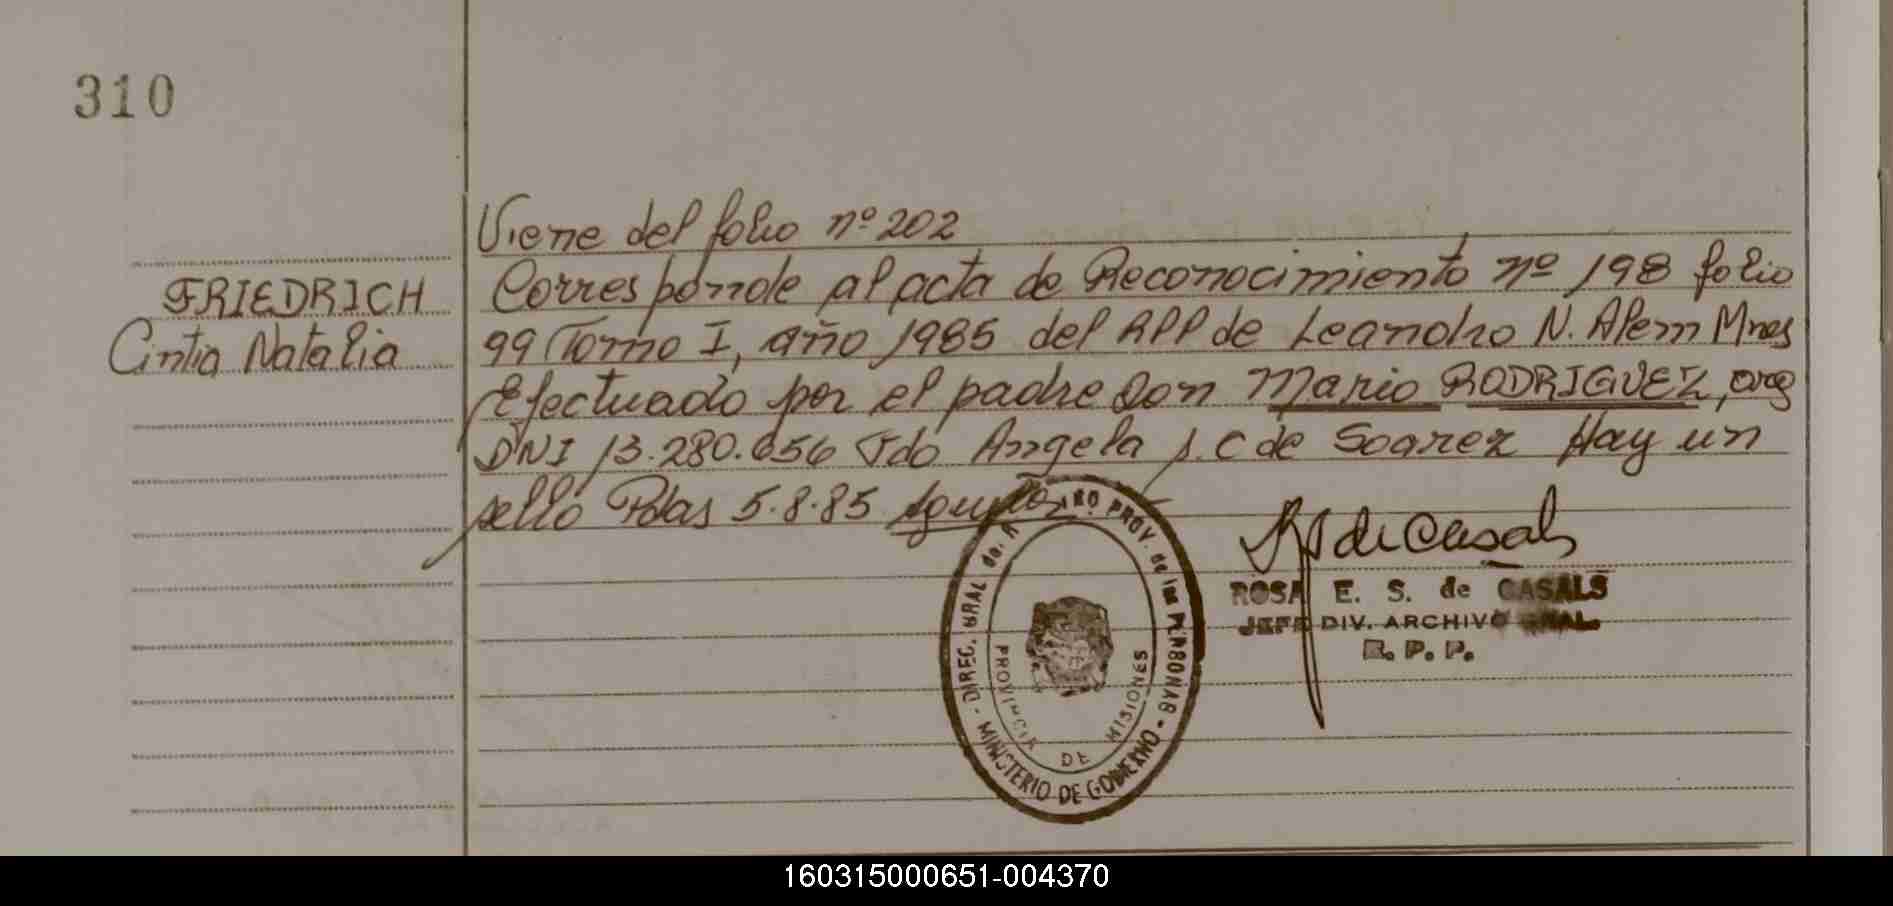 310
Viene del folio nº 202
FRIEDRICH
Cintia Natalia
Corresponde al acta de Reconocimiento nº 198 folio
99 Tomo I, año 1985 del RPP de Leandro N. Alem Mnes
Efectuado por el padre Don Mario RODRIGUEZ, arg
DNI 13.280.656 Fdo Angela S. C de Soarez Hay un
sello Pdas 5.8.85
DIREC. GRAL de. PROV. de las PERSONAS - MINISTERIO DE GOBIERNO -
PROVINCIA DE MISIONES
de Casals
ROSA E. S. de CASALS
JEFE DIV. ARCHIVO GRAL.
R. P. P.
160315000651-004370